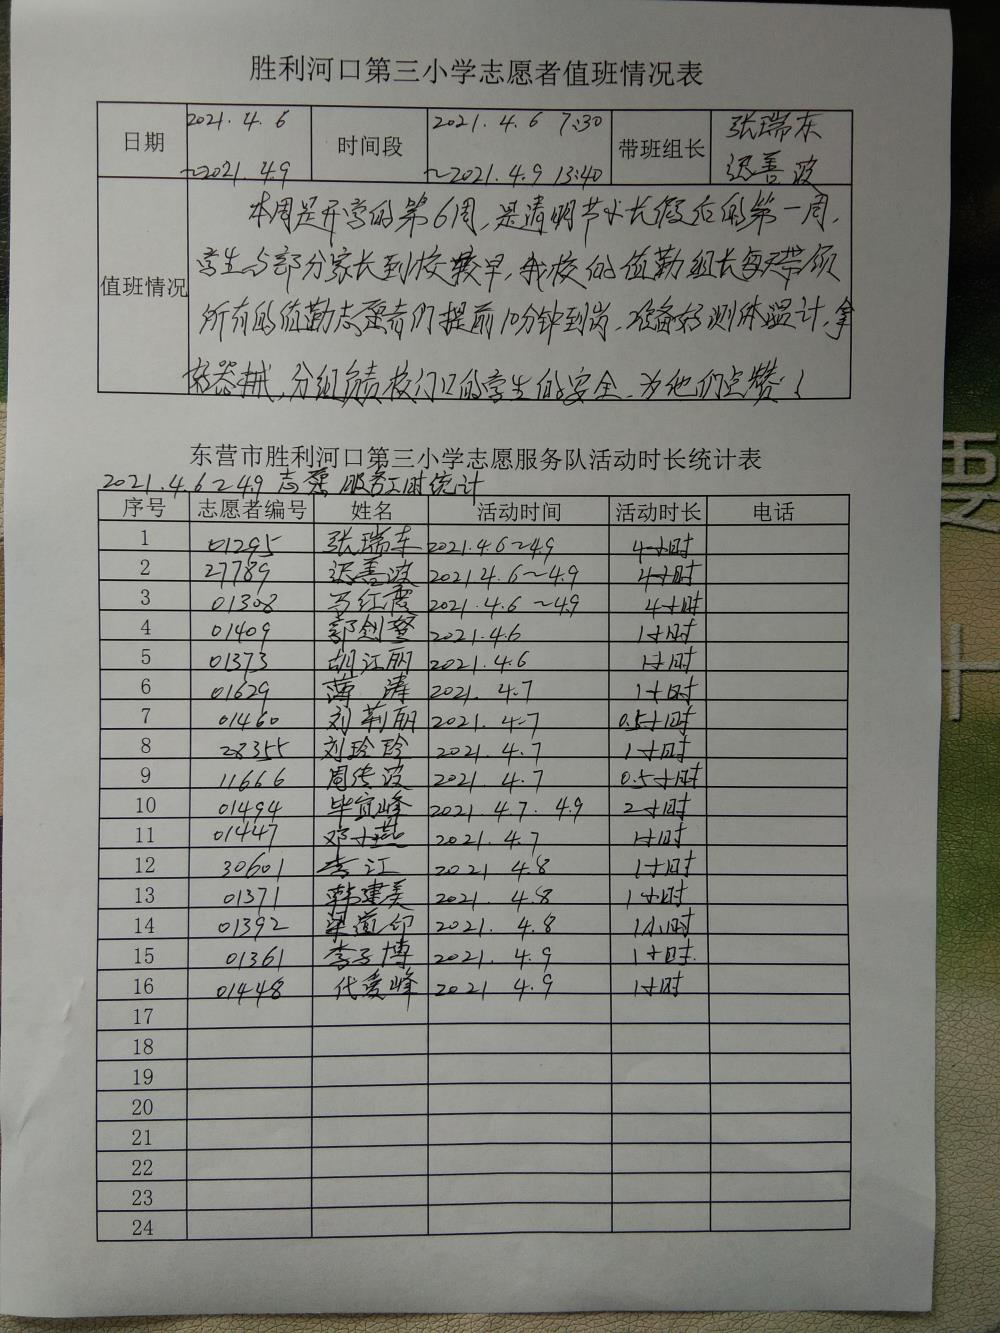 胜利河口第三小学志愿者值班情况表
日期 2021.4.6 ~2021.4.9 时间段 2021.4.6 7:30 ~2021.4.9 13:40 带班组长 张瑞东 迟善波
值班情况
本周是开学的第6周,是清明节小长假后的第一周,
学生与部分家长到校较早,我校的值勤组长每天带领
所有的值勤志愿者们提前10分钟到岗,准备好测体温计,拿
好器械,分组负责校门口的学生的安全,为他们点赞!
东营市胜利河口第三小学志愿服务队活动时长统计表
2021.4.6~4.9 志愿服务工时统计
序号 志愿者编号 姓名 活动时间 活动时长 电话
1 01295 张瑞东 2021.4.6~4.9 4小时
2 27789 迟善波 2021 4.6~4.9 4小时
3 01308 马红霞 2021.4.6~4.9 4小时
4 01409 郭剑 2021.4.6 1小时
5 01373 胡江丽 2021.4.6 1小时
6 01629 薄涛 2021.4.7 1小时
7 01460 刘莉丽 2021.4.7 0.5小时
8 28355 刘玲玲 2021.4.7 1小时
9 11666 周传波 2021.4.7 0.5小时
10 01494 毕宜峰 2021.4.7.4.9 2小时
11 01447 邓小燕 2021.4.7 1小时
12 30601 李江 2021 4.8 1小时
13 01371 韩建美 2021.4.8 1小时
14 01392 梁道印 2021.4.8 1小时
15 01361 李子博 2021.4.9 1小时.
16 01448 代爱峰 2021 4.9 1小时
17
18
19
20
21
22
23
24
要
十